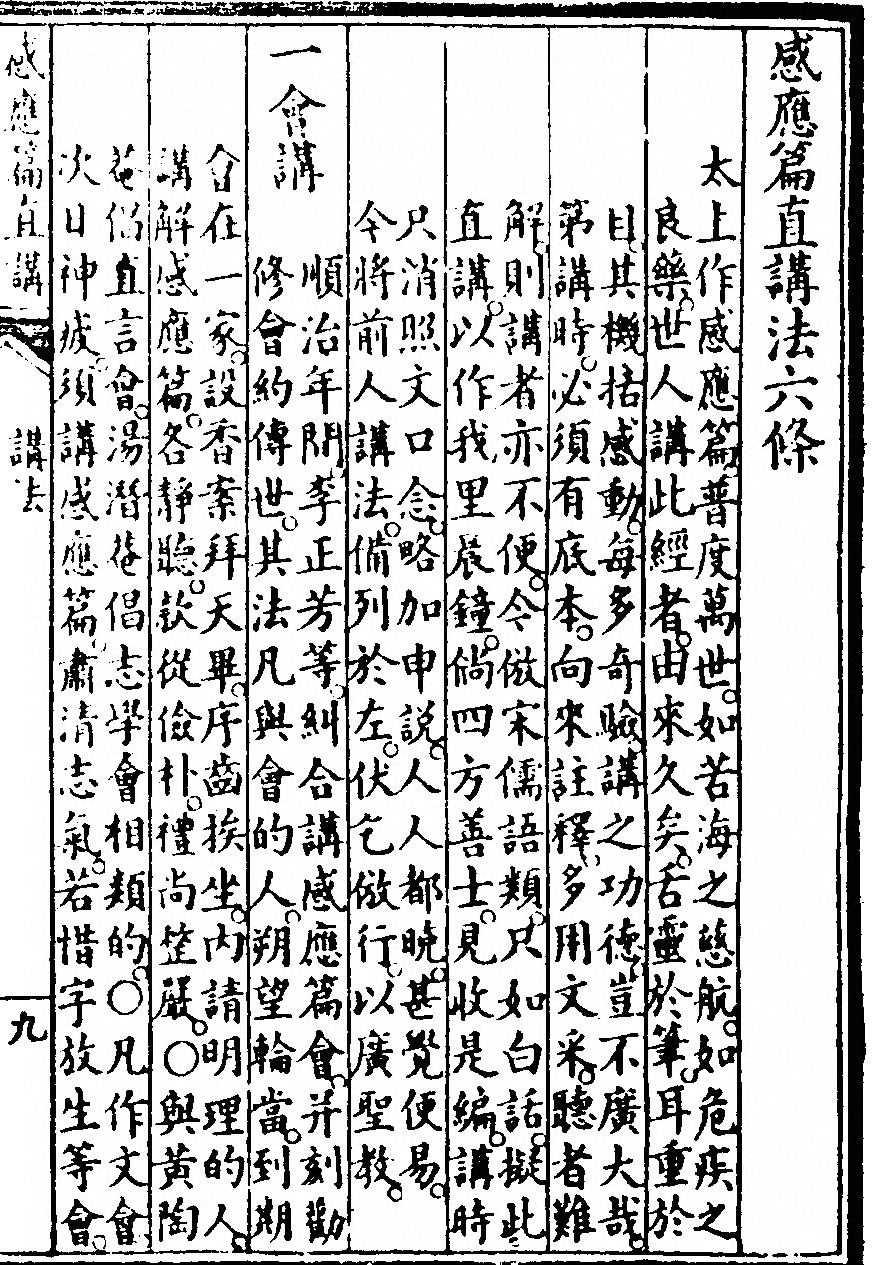 感應篇直講法六條
太上作感應篇普度萬世。如苦海之慈航。如危疾之
良藥。世人講此經者。由來久矣。舌靈於筆。耳重於
目。其機括感動。每多奇驗。講之功德。豈不廣大哉。
第講時。必須有底本。向來註釋。多用文采。聽者難
解。則講者亦不便。今倣宋儒語類。只如白話。擬此
直講。以作我里晨鐘。倘四方善士。見收是編。講時
只消照文口念。略加申說。人人都曉。甚覺便易。
今將前人講法。備列於左。伏乞倣行。以廣聖教。
一會講
順治年閒。李正芳等。糾合講感應篇會。并刻勸
修會約傳世。其法凡與會的人。朔望輪當。到期
會在一家。設香案拜天畢。序齒挨坐。內請明理的人。
講解感應篇。各靜聽。飲從儉朴。禮尚莊嚴。〇與黃陶
菴倡直言會。湯潛菴倡志學會相類的。〇凡作文會。
次日神疲。須講感應篇。肅清志氣。若惜字放生等會。
感應篇直講
講法
九